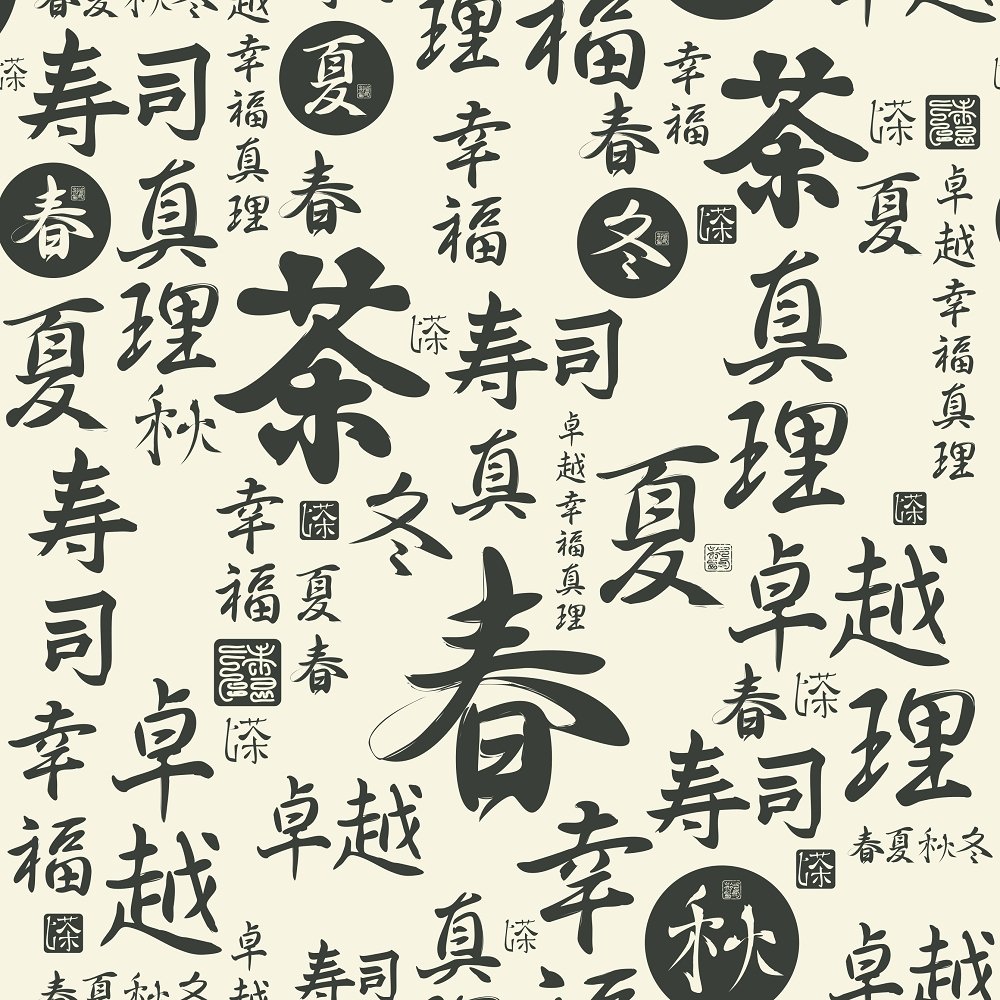 春夏秋冬
越
理
福
卓越
寿司
幸福真理
夏
春
幸福
春
幸福
茶
茶
茶
夏
卓越幸福真理
春
真理
冬
茶
夏
秋
茶
茶
寿司
真理
真
卓越幸福真理
夏
茶
寿司
幸福
茶
冬
夏
春
春
卓越
理
春
茶
幸福
卓越
茶
卓越
寿司
春夏秋冬
茶
幸
秋
茶
真理
茶
卓越
寿司
春夏秋冬
卓越